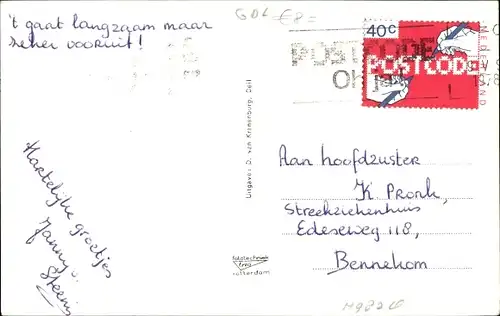 't gaat langzaam maar
zeker vooruit!
Hartelijke groetjes
Janny
GDL €8=
40c
NEDERLAND
POSTCODE
POSTCODE
Uitgave: D. van Kranenburg, Deil
fototechniek
rotterdam
Aan hoofdzuster
K Pronk,
Streekziekenhuis
Edeseweg 118,
Bennekom